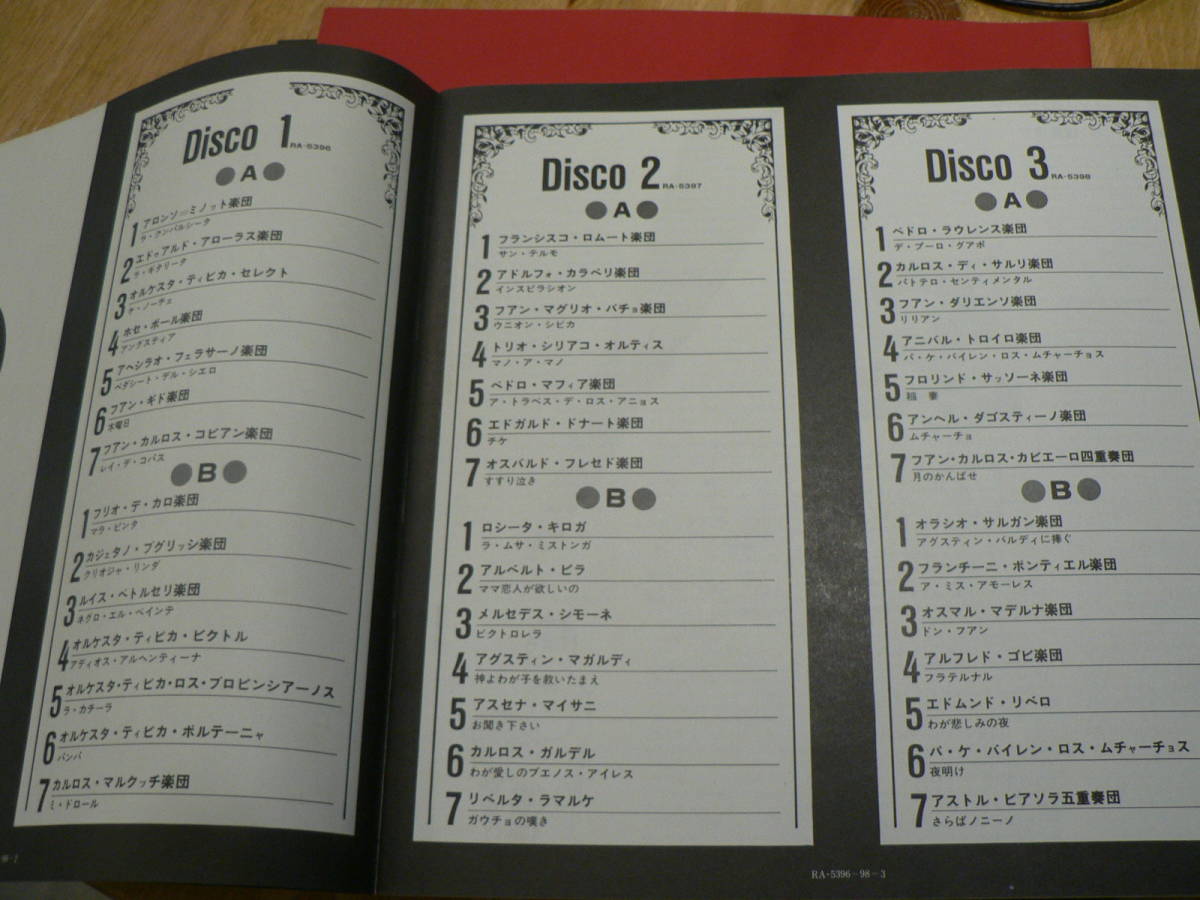 Disco 1 RA-5396
A
1 アロンソ=ミノット楽団
ラ・クンパルシータ
2 エドゥアルド・アローラス楽団
ラ・ギタリータ
3 オルケスタ・ティピカ・セレクト
ケ・ノーチェ
4 ホセ・ボール楽団
アングスティア
5 アヘシラオ・フェラサーノ楽団
ペダシート・デル・シエロ
6 フアン・ギド楽団
水曜日
7 フアン・カルロス・コビアン楽団
レイ・デ・コパス
B
1 フリオ・デ・カロ楽団
マラ・ピンタ
2 カジェタノ・プグリッシ楽団
クリオジャ・リンダ
3 ルイス・ペトルセリ楽団
ネグロ・エル・ペインテ
4 オルケスタ・ティピカ・ビクトル
アディオス・アルヘンティーナ
5 オルケスタ・ティピカ・ロス・プロビンシアーノス
ラ・カチーラ
6 オルケスタ・ティピカ・ポルテーニャ
パンパ
7 カルロス・マルクッチ楽団
ミ・ドロール
Disco 2 RA-5397
A
1 フランシスコ・ロムート楽団
サン・テルモ
2 アドルフォ・カラベリ楽団
インスピラシオン
3 フアン・マグリオ・パチョ楽団
ウニオン・シビカ
4 トリオ・シリアコ・オルティス
マノ・ア・マノ
5 ペドロ・マフィア楽団
ア・トラベス・デ・ロス・アニョス
6 エドガルド・ドナート楽団
チケ
7 オスバルド・フレセド楽団
すすり泣き
B
1 ロシータ・キロガ
ラ・ムサ・ミストンガ
2 アルベルト・ビラ
ママ恋人が欲しいの
3 メルセデス・シモーネ
ビクトロレラ
4 アグスティン・マガルディ
神よわが子を救いたまえ
5 アスセナ・マイサニ
お聞き下さい
6 カルロス・ガルデル
わが愛しのブエノス・アイレス
7 リベルタ・ラマルケ
ガウチョの嘆き
Disco 3 RA-5398
A
1 ペドロ・ラウレンス楽団
デ・プーロ・グアポ
2 カルロス・ディ・サルリ楽団
パトテロ・センティメンタル
3 フアン・ダリエンソ楽団
リリアン
4 アニバル・トロイロ楽団
パ・ケ・バイレン・ロス・ムチャーチョス
5 フロリンド・サッソーネ楽団
稲妻
6 アンヘル・ダゴスティーノ楽団
ムチャーチョ
7 フアン・カルロス・カビエーロ四重奏団
月のかんばせ
B
1 オラシオ・サルガン楽団
アグスティン・バルディに捧ぐ
2 フランチーニ・ポンティエル楽団
ア・ミス・アモーレス
3 オスマル・マデルナ楽団
ドン・フアン
4 アルフレド・ゴビ楽団
フラテルナル
5 エドムンド・リベロ
わが悲しみの夜
6 パ・ケ・バイレン・ロス・ムチャーチョス
夜明け
7 アストル・ピアソラ五重奏団
さらばノニーノ
RA-5396-98-3